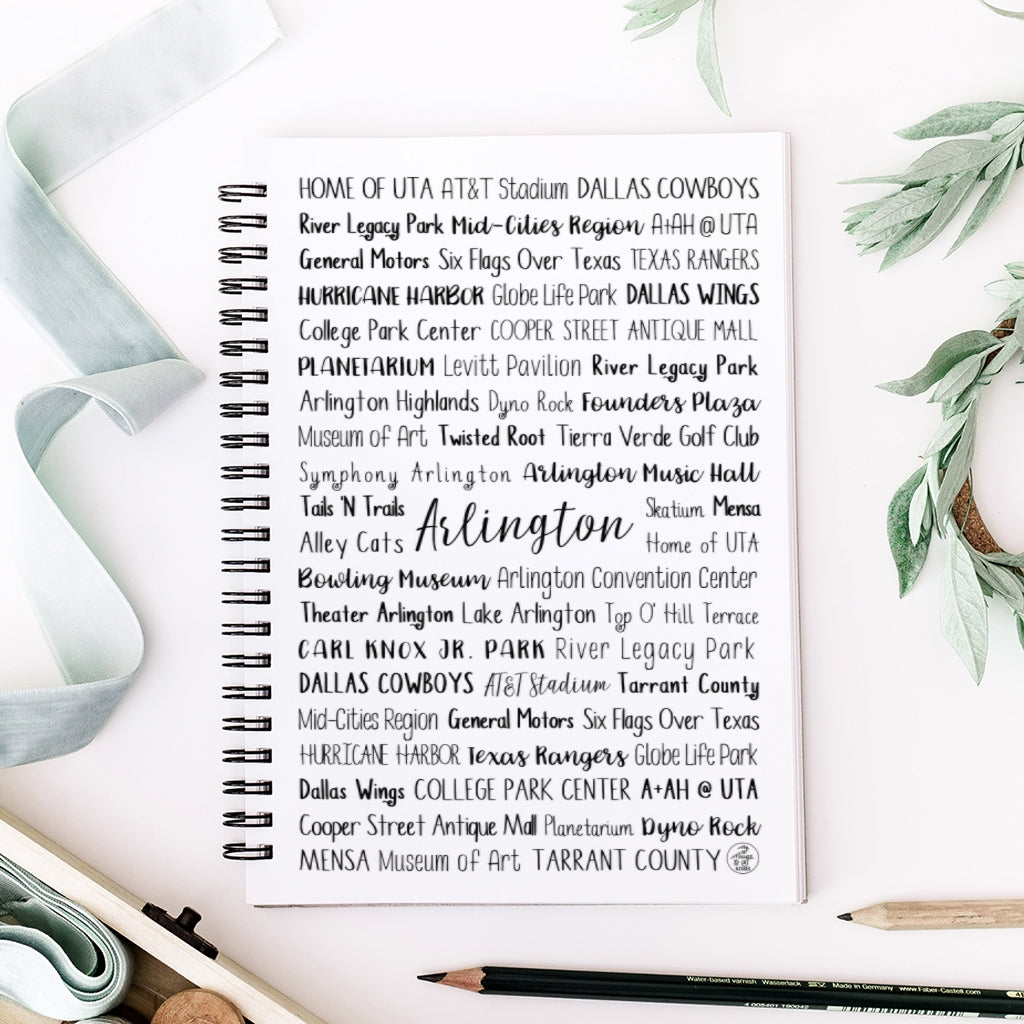 HOME OF UTA AT&T Stadium DALLAS COWBOYS
River Legacy Park Mid-Cities Region A+AH @ UTA
General Motors Six Flags Over Texas TEXAS RANGERS
HURRICANE HARBOR Globe Life Park DALLAS WINGS
College Park Center COOPER STREET ANTIQUE MALL
PLANETARIUM Levitt Pavilion River Legacy Park
Arlington Highlands Dyno Rock Founders Plaza
Museum of Art Twisted Root Tierra Verde Golf Club
Symphony Arlington Arlington Music Hall
Tails 'N Trails
Alley Cats
Arlington
Skatium Mensa
Home of UTA
Bowling Museum Arlington Convention Center
Theater Arlington Lake Arlington Top O' Hill Terrace
CARL KNOX JR. PARK River Legacy Park
DALLAS COWBOYS AT&T Stadium Tarrant County
Mid-Cities Region General Motors Six Flags Over Texas
HURRICANE HARBOR Texas Rangers Globe Life Park
Dallas Wings COLLEGE PARK CENTER A+AH @ UTA
Cooper Street Antique Mall Planetarium Dyno Rock
MENSA Museum of Art TARRANT COUNTY
Water-based varnish Wasserlack Made in Germany www.Faber-Castell.com